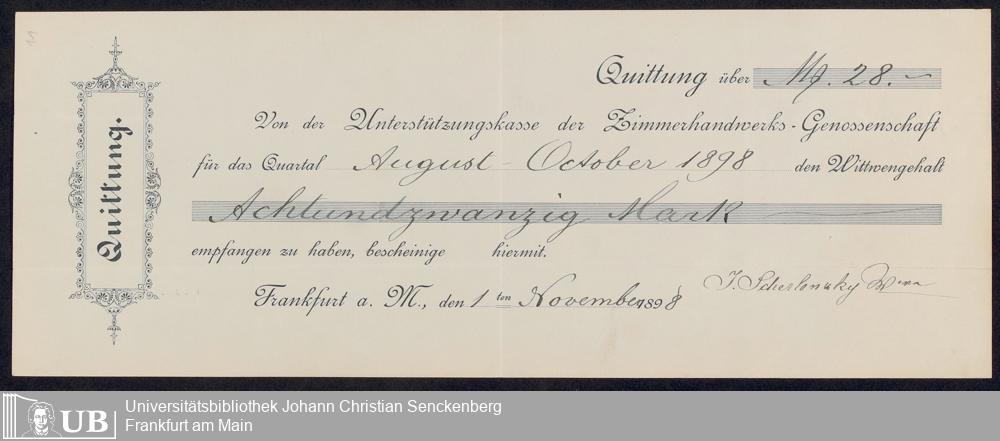 Quittung.
Quittung über M. 28.—
Von der Unterstützungskasse der Zimmerhandwerks-Genossenschaft
für das Quartal August - October 1898 den Wittwengehalt
Achtundzwanzig Mark
empfangen zu haben, bescheinige hiermit.
Frankfurt a. M., den 1ten November 1898
UB
Universitätsbibliothek Johann Christian Senckenberg
Frankfurt am Main